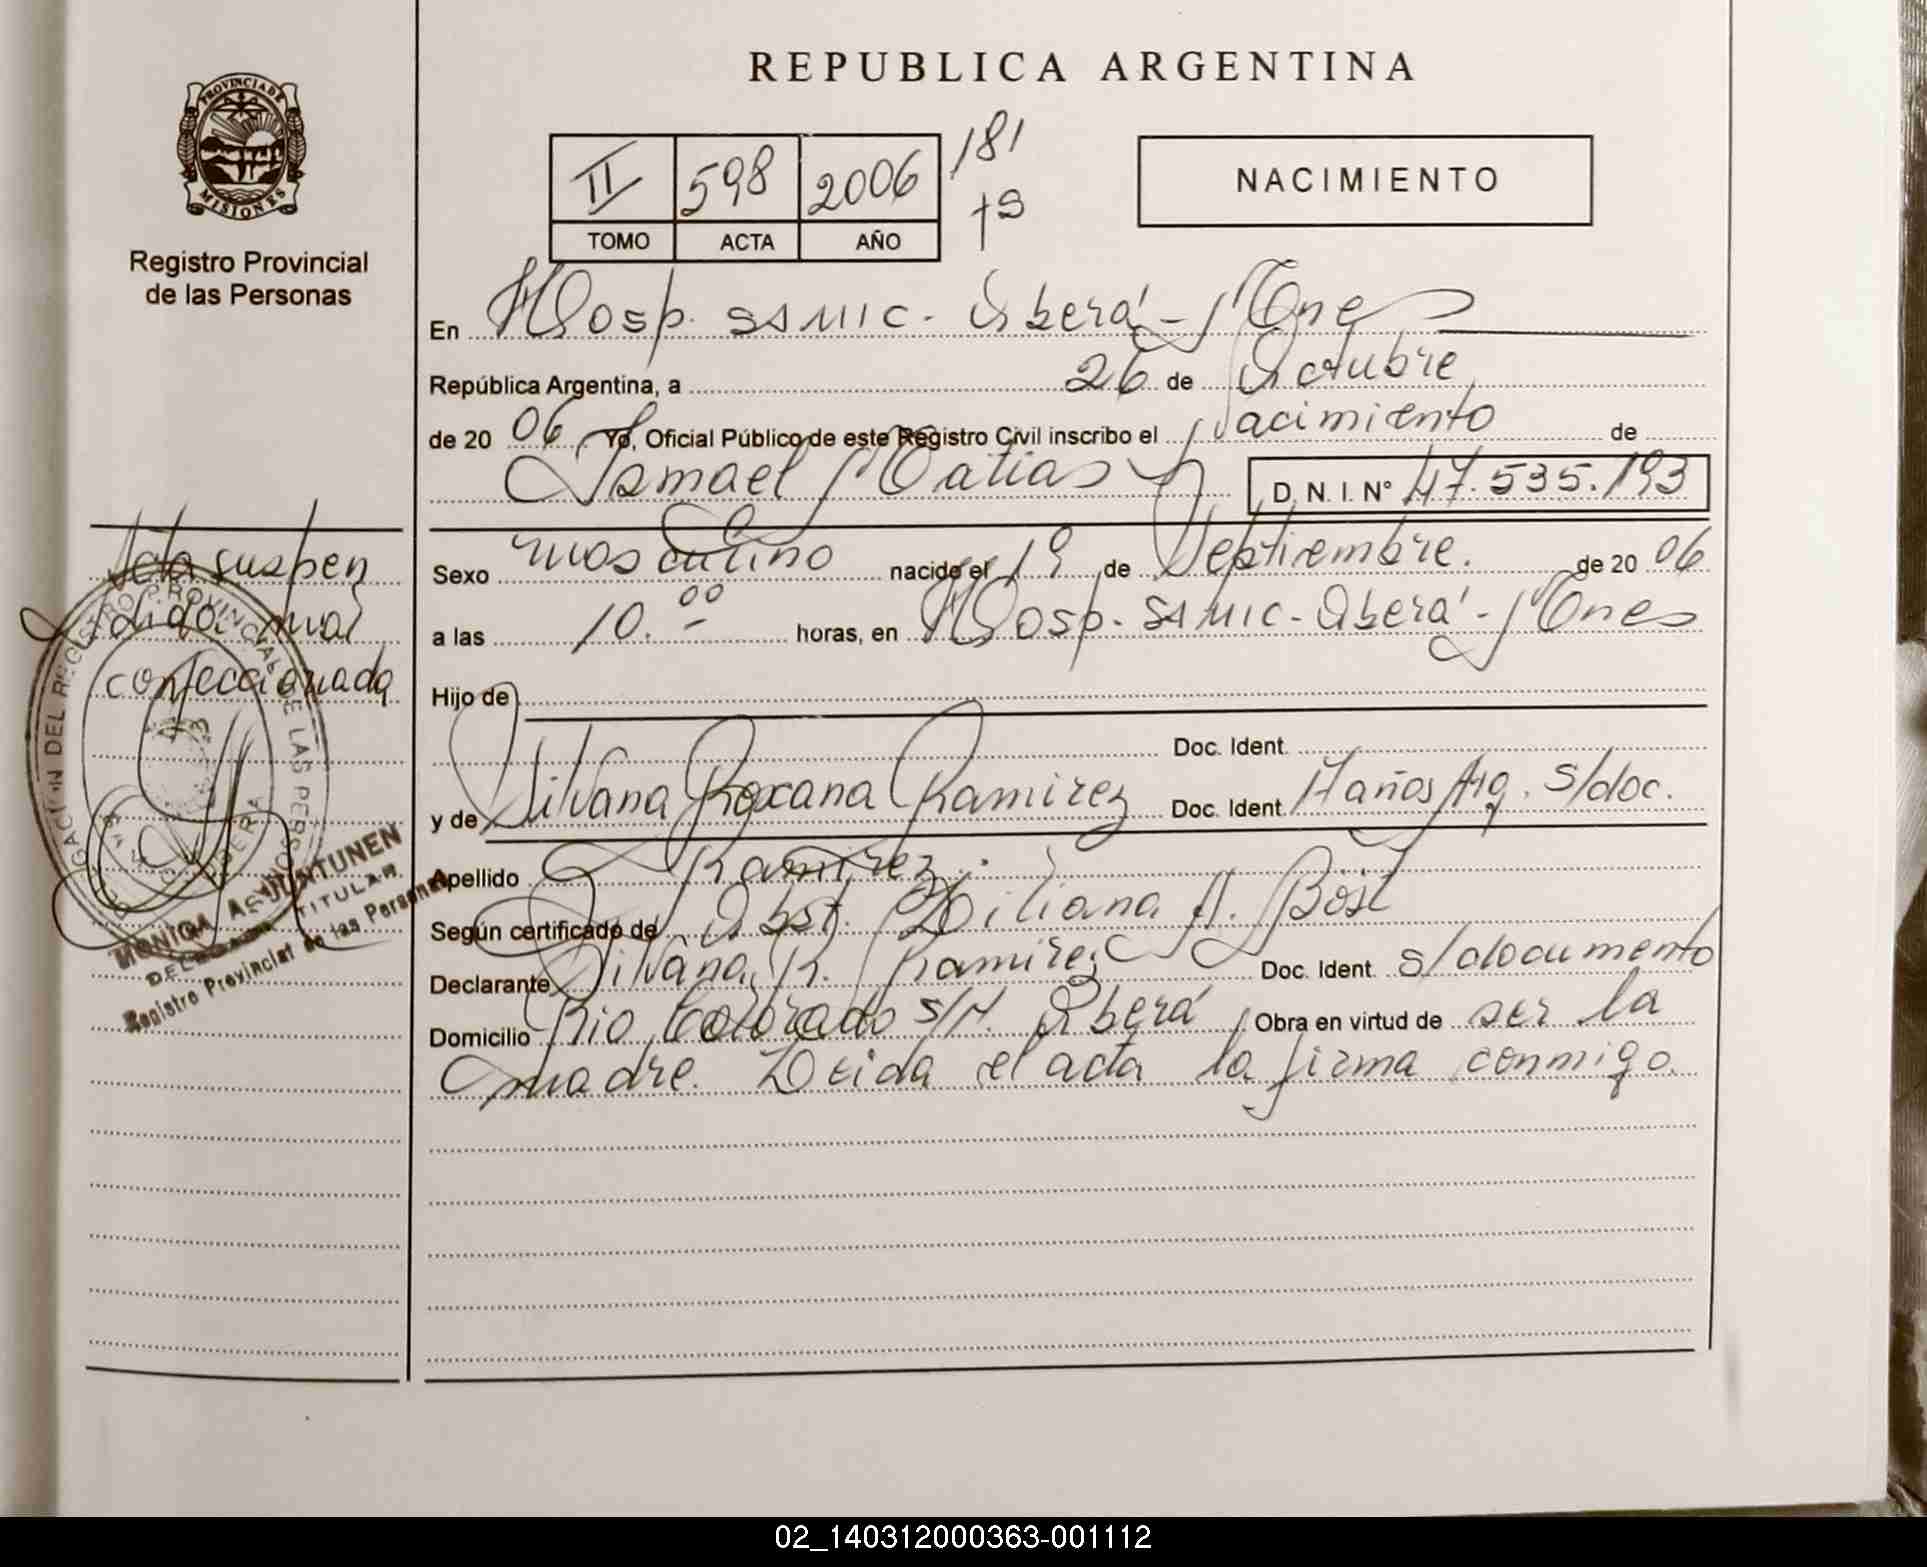 REPUBLICA ARGENTINA
PROVINCIA DE MISIONES
Registro Provincial
de las Personas
II 598 2006 181
TOMO ACTA AÑO
NACIMIENTO
En Hosp. SAMIC - Oberá - Mnes
República Argentina, a 26 de Octubre
de 20 06 Yo, Oficial Público de este Registro Civil inscribo el Nacimiento de
Ismael Matias D. N. I. Nº 47.535.193
Sexo masculino nacido el 19 de Septiembre. de 20 06
a las 10.00 horas, en Hosp. SAMIC - Oberá - Mnes
Hijo de
Doc. Ident.
y de Silvana Roxana Ramirez Doc. Ident. 17 años Arg. S/doc.
Apellido Ramirez.
Según certificado de Obst. Liliana A. Böst
Declarante Silvana R. Ramirez Doc. Ident. s/documento
Domicilio Rio Colorado S/N. Oberá Obra en virtud de ser la
madre. Leida el acta la firma conmigo.
Acta suspen
dida mal
confeccionada
DELEGACION DEL REGISTRO PROVINCIAL DE LAS PERSONAS
OBERA
MONICA ASUNTUNEN
DELEGADA TITULAR
Registro Provincial de las Personas
02_140312000363-001112